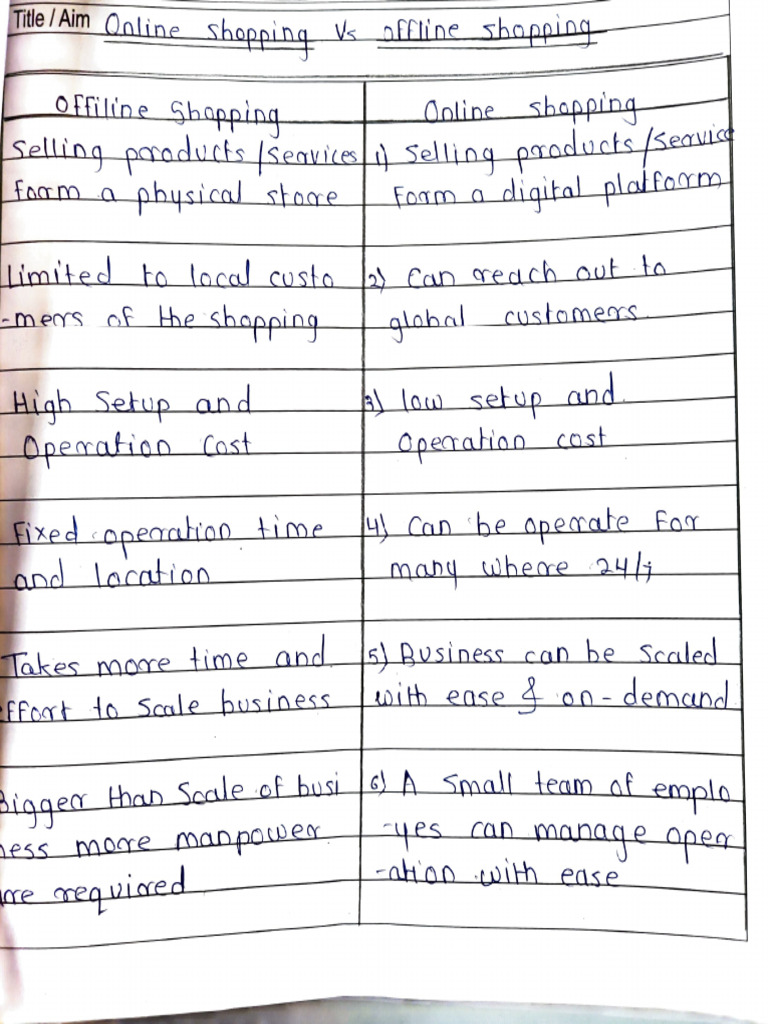 Title / Aim Online shopping Vs offline shopping
Offiline Shopping
Selling products /Services
form a physical store
Limited to local custo
-mers of the shopping
High Setup and
Operation Cost
Fixed operation time
and location
Takes more time and
effort to scale business
Bigger than Scale of busi
ness more manpower
are required
Online shopping
1) Selling products /Service
form a digital platform
2) Can reach out to
global customers
3) low setup and
Operation cost
4) Can be operate for
many where 24/7
5) Business can be scaled
with ease & on-demand
6) A Small team of emplo
-yes can manage oper
-ation with ease